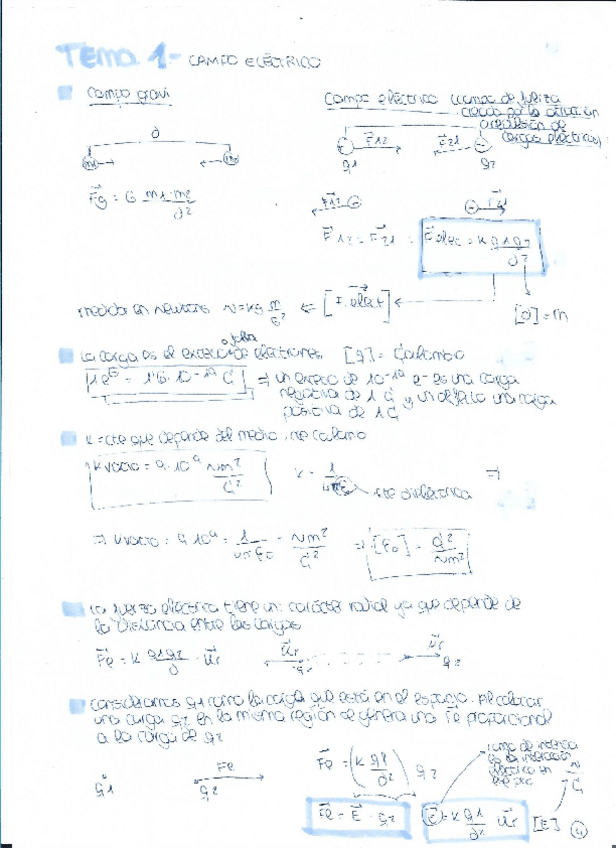 TEMA 1.- CAMPO ELÉCTRICO
Campo gravi
Campo eléctrico (campo de fuerza
creado por la atracción
o repulsión de
cargas eléctricas)
d
m1 m2
F12 F21
q1 q2
Fg = G m1·m2 / d²
F12 F21
F12 = F21 = Felec = K q1q2 / d²
medida en newtons N = kg m/s² ⇐ [Felect]
[d] = m
La carga es el exceso de electrones [q] = Culombio
1 e⁻ = 1'6·10⁻¹⁹ C ⇒ un exceso de 10⁻¹⁹ e⁻ es una carga
negativa de 1 C y un defecto una carga
positiva de 1 C
K = cte que depende del medio
K vacío = 9·10⁹ Nm²/C²
K = 1/4πε
cte dieléctrica ⇒
⇒ K vacío = 9·10⁹ = 1/4πε0 = Nm²/C² ⇒ [ε0] = C²/Nm²
La fuerza eléctrica tiene un carácter radial ya que depende de
la distancia entre las cargas
Fe = K q1q2/d · ur
ur ur
q2
Consideramos q1 como la carga que está en el espacio. Al colocar
una carga q2 en la misma región se genera una Fe proporcional
a la carga de q2
q1 q2 Fe
Fe = (K q1/d²) q2
Fe = E · q2
E = K q1/d² ur
[E] N/C
4